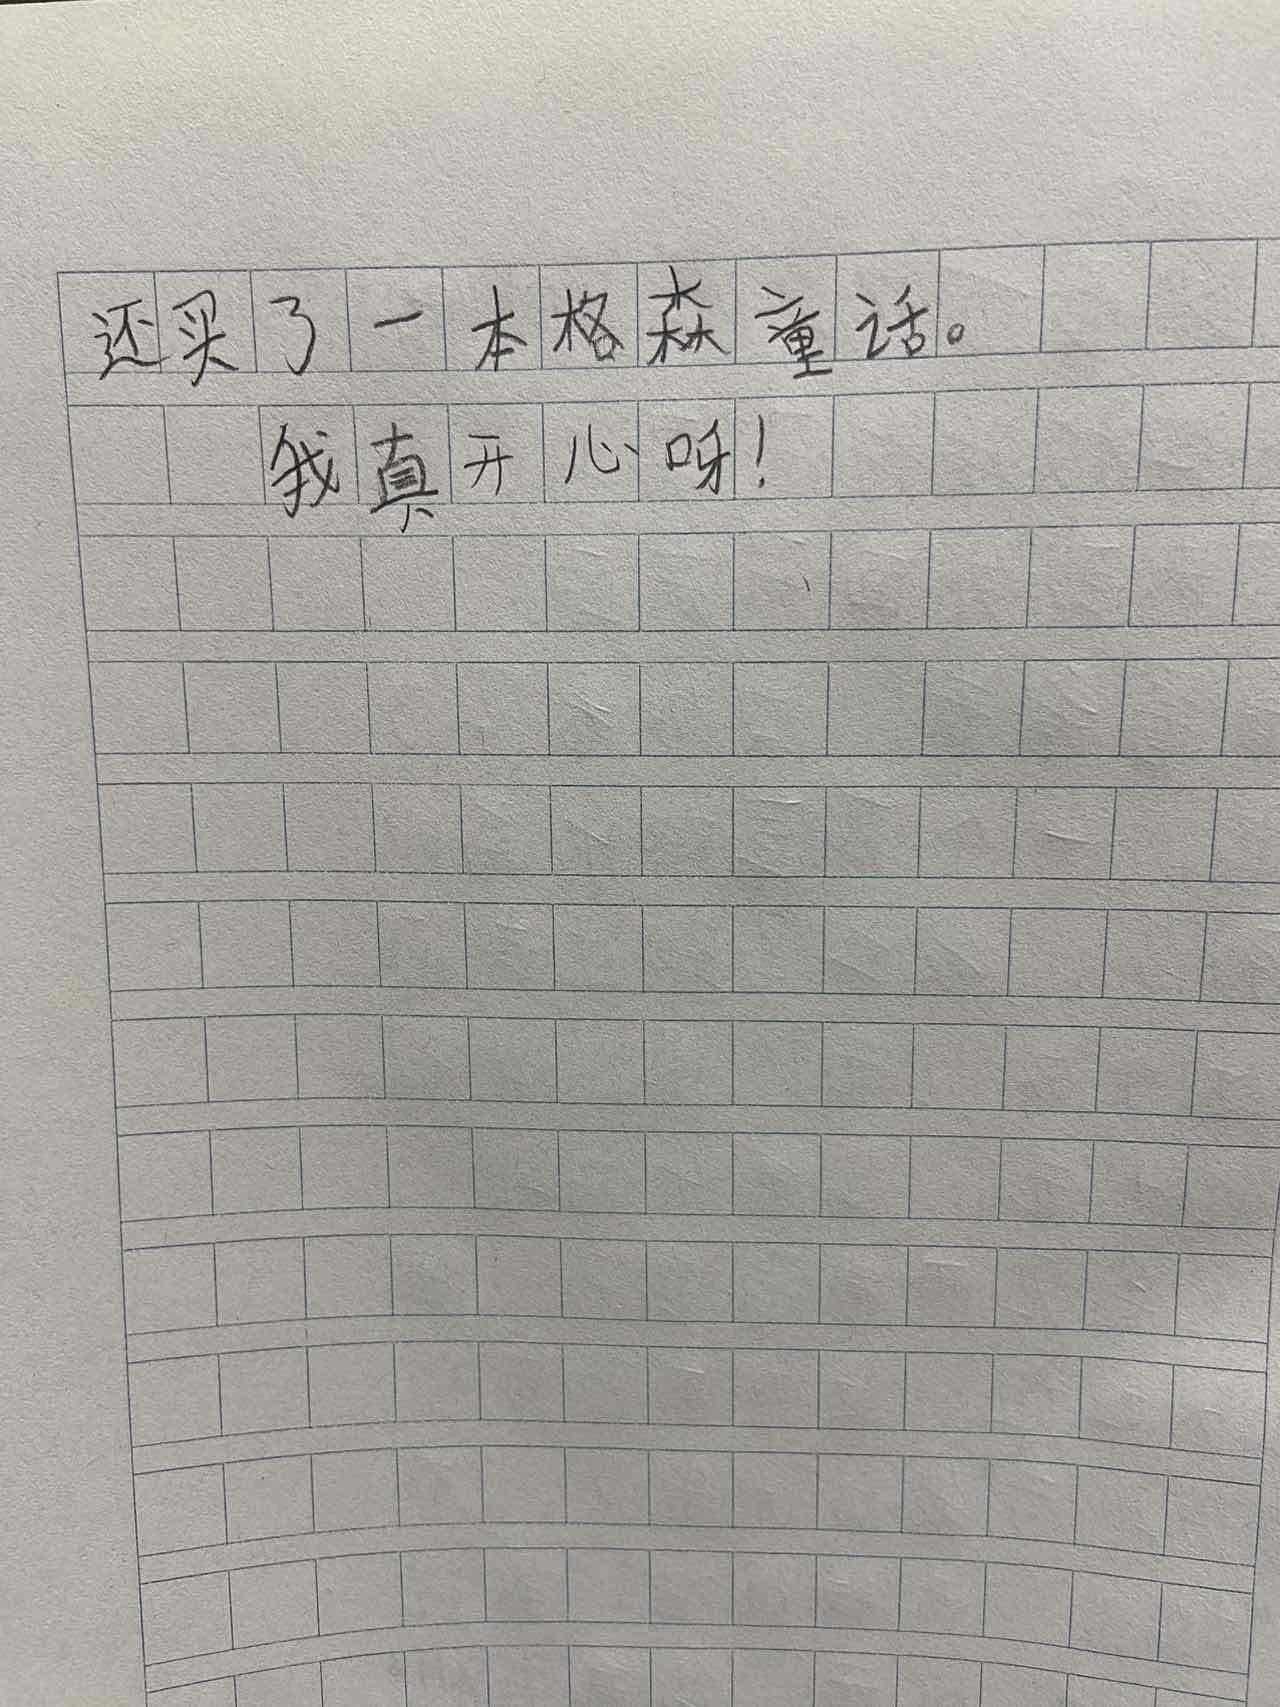 还买了一本格森童话。
我真开心呀！